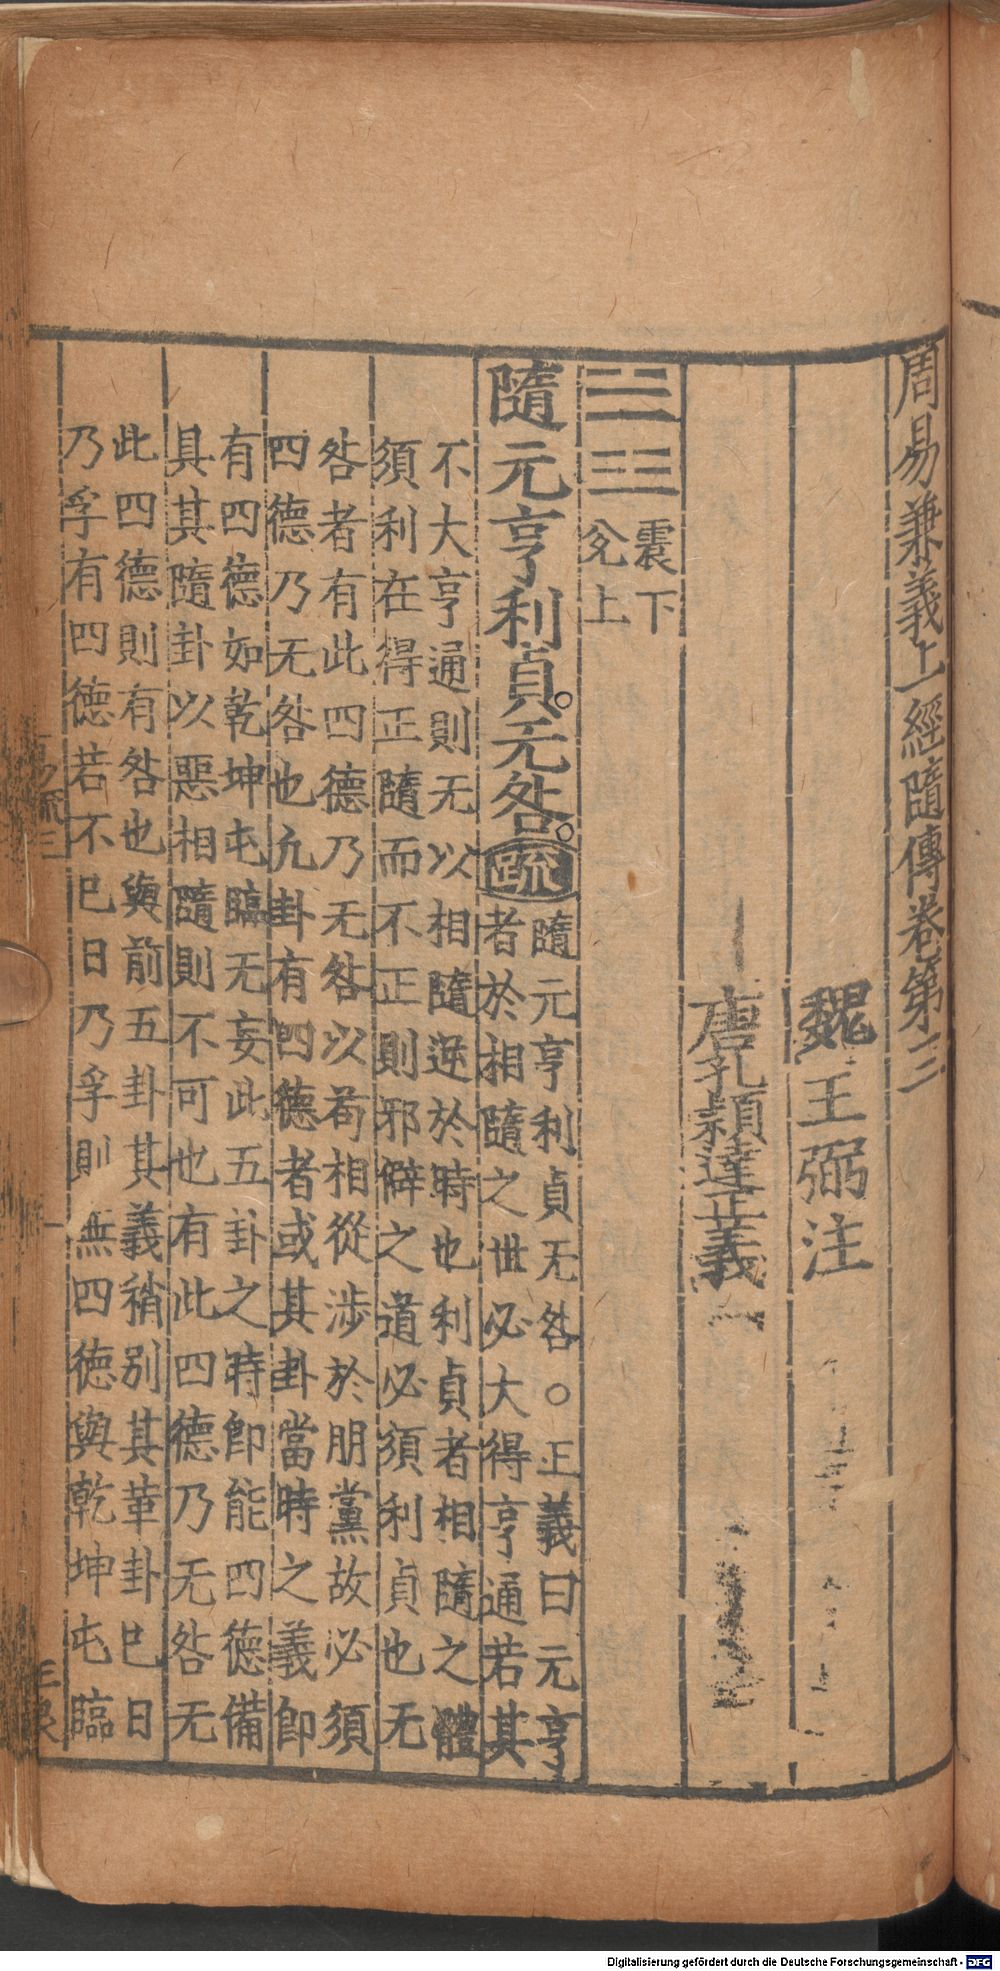 周易兼義上經隨傳卷第三
魏王弼注
唐孔穎達正義
震下
兌上
隨元亨利貞。无咎。疏
隨元亨利貞无咎○正義曰元亨
者於相隨之世必大得亨通若其
不大亨通則无以相隨逆於時也利貞者相隨之體
須利在得正隨而不正則邪僻之道必須利貞也无
咎者有此四德乃无咎以苟相從涉於朋黨故必須
四德乃无咎也凡卦有四德者或其卦當時之義即
有四德如乾坤屯臨无妄此五卦之時即能四德備
具其隨卦以惡相隨則不可也有此四德乃无咎无
此四德則有咎也與前五卦其義稍別其革卦巳日
乃孚有四德若不巳日乃孚則無四德與乾坤屯臨
易疏三
一
Digitalisierung gefördert durch die Deutsche Forschungsgemeinschaft - DFG